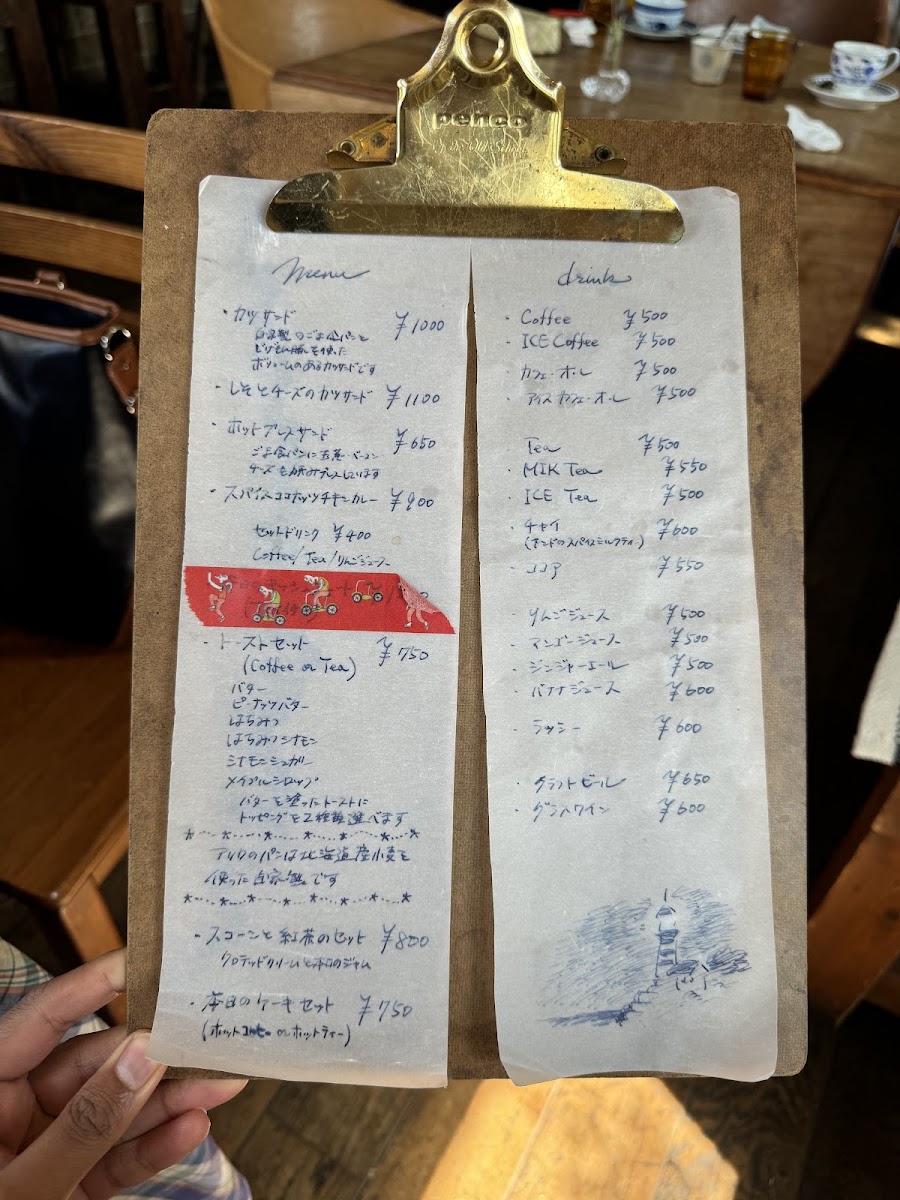 penco
Menu
・カツサンド ¥1000
自家製のごま食パンと
を使った
ボリュームのあるカツサンドです
・しそとチーズのカツサンド ¥1100
・ホットプレスサンド ¥650
ごま食パンに ベーコン
チーズを挟みプレスしています
・スパイスココナッツチキンカレー ¥900
セットドリンク ¥400
Coffee/Tea/りんごジュース
・トーストセット ¥750
(Coffee or Tea)
バター
ピーナッツバター
はちみつ
はちみつシナモン
シナモンシュガー
メイプルシロップ
バターを塗ったトーストに
トッピングを2種類選べます
のパンは北海道産小麦を
使った自家製です
・スコーンと紅茶のセット ¥800
クロテッドクリームと本日のジャム
・本日のケーキセット ¥750
(ホットコーヒー or ホットティー)
drink
・Coffee ¥500
・ICE Coffee ¥500
・カフェ・オ・レ ¥500
・アイスカフェ・オ・レ ¥500
・Tea ¥500
・MIK Tea ¥550
・ICE Tea ¥500
・チャイ ¥600
(インドのスパイスミルクティ)
・ココア ¥550
・りんごジュース ¥500
・マンゴージュース ¥500
・ジンジャーエール ¥500
・バナナジュース ¥600
・ラッシー ¥600
・クラフトビール ¥650
・グラスワイン ¥600